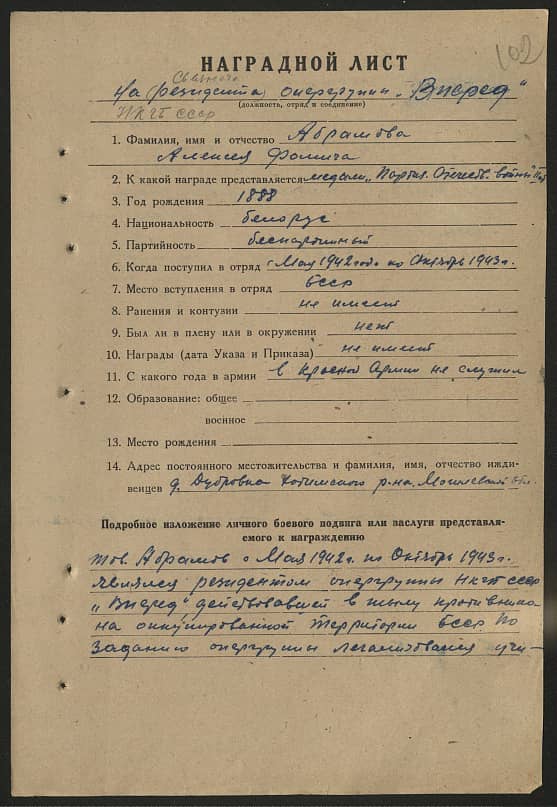 102
НАГРАДНОЙ ЛИСТ
Связного
На (резидента) опергруппы „Вперед"
(должность, отряд и соединение)
НКГБ СССР
1. Фамилия, имя и отчество Абрамова
Алексея Фомича
2. К какой награде представляется медали „Партиз. Отечеств. войны" II ст
3. Год рождения 1888
4. Национальность белорус
5. Партийность беспартийный
6. Когда поступил в отряд с Мая 1942 года по Октябрь 1943 г.
7. Место вступления в отряд БССР
8. Ранения и контузии не имеет
9. Был ли в плену или в окружении нет
10. Награды (дата Указа и Приказа) не имеет
11. С какого года в армии в Красной Армии не служил
12. Образование: общее
военное
13. Место рождения
14. Адрес постоянного местожительства и фамилия, имя, отчество ижди-
венцев д. Дубровка Хотимского р-на. Могилевской обл.
Подробное изложение личного боевого подвига или заслуги представля-
емого к награждению
тов. Абрамов с Мая 1942 г. по Октябрь 1943 г.
являлся резидентом опергруппы НКГБ СССР
„Вперед" действовавшей в тылу противника
на оккупированной территории БССР. По
заданию опергруппы легализовался учи-